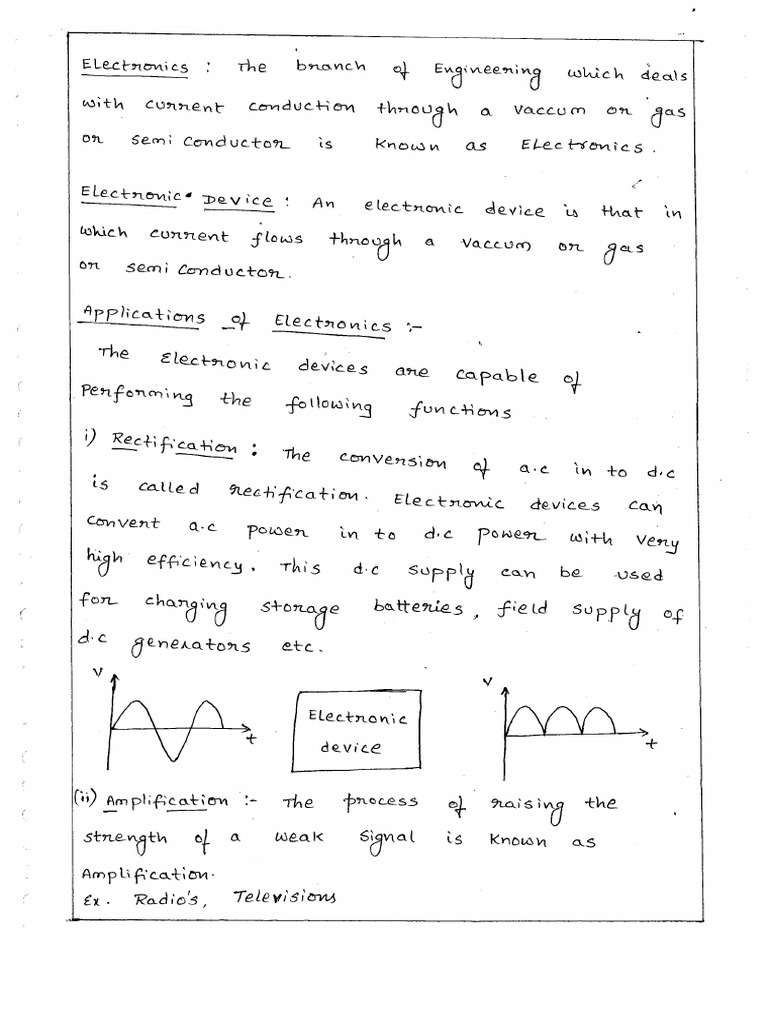 Electronics : The branch of Engineering which deals
with current conduction through a vaccum or gas
or semi conductor is known as Electronics.
Electronic Device : An electronic device is that in
which current flows through a vaccum or gas
or semi conductor.
Applications of Electronics :-
The Electronic devices are capable of
performing the following functions
i) Rectification : The conversion of a.c in to d.c
is called rectification. Electronic devices can
convert a.c power in to d.c power with very
high efficiency. This d.c supply can be used
for charging storage batteries, field supply of
d.c generators etc.
V
t
Electronic
device
V
t
(ii) Amplification :- The process of raising the
strength of a weak signal is known as
Amplification.
Ex. Radio's, Televisions